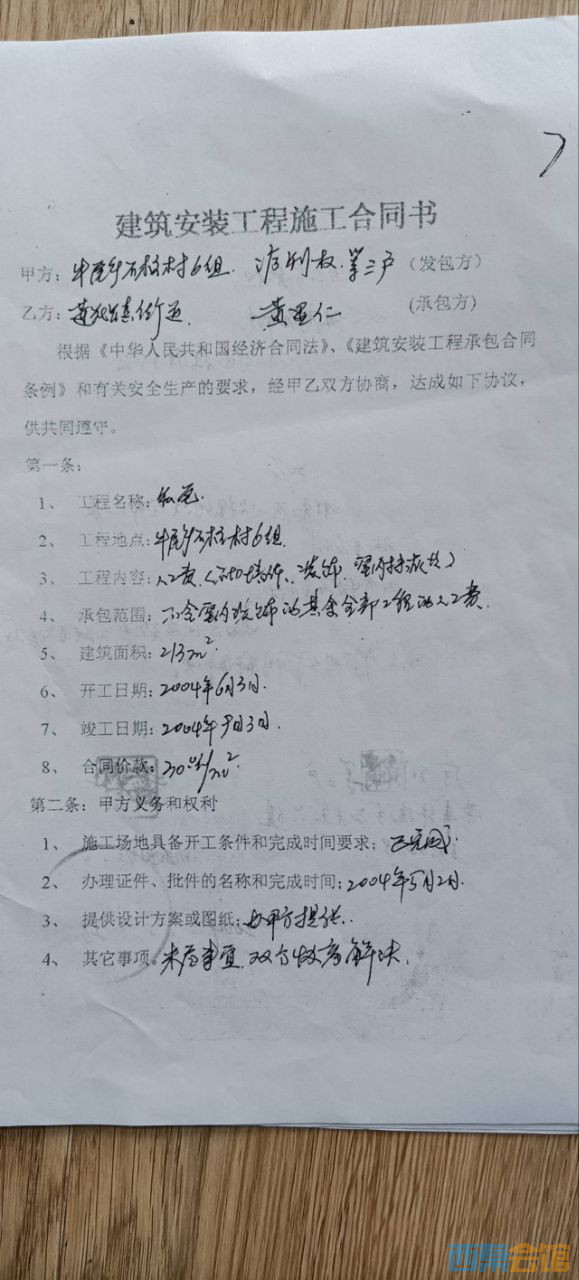 建筑安装工程施工合同书
甲方：牛尾乡石桂村6组 等三户（发包方）
乙方： 黄显仁 (承包方)
根据《中华人民共和国经济合同法》、《建筑安装工程承包合同
条例》和有关安全生产的要求，经甲乙双方协商，达成如下协议，
供共同遵守。
第一条：
1、 工程名称：
2、 工程地点：牛尾乡石桂村6组
3、 工程内容：人工费
4、 承包范围：不含室内装饰的其余全部工程的人工费
5、 建筑面积：213m²
6、 开工日期：2004年6月3日.
7、 竣工日期：2004年9月3日.
8、 合同价款：
第二条：甲方义务和权利
1、 施工场地具备开工条件和完成时间要求：已完成
2、 办理证件、批件的名称和完成时间：2004年5月2日.
3、 提供设计方案或图纸：由甲方提供.
4、 其它事项。未尽事宜，双方协商解决.
西祠会馆